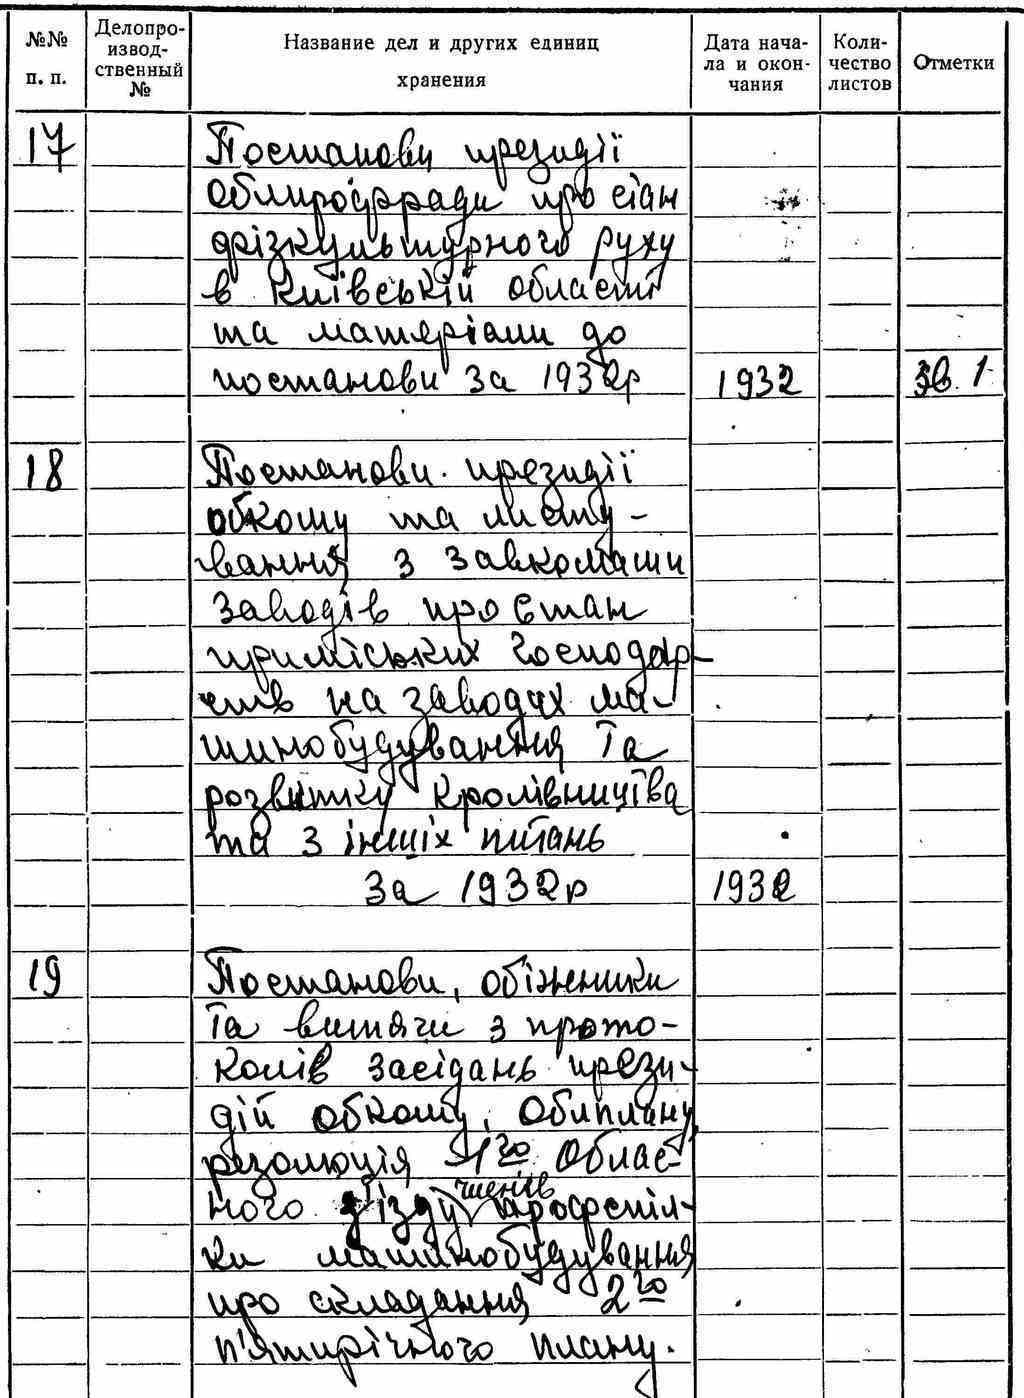 №№ п. п.
Делопро-
извод-
ственный
№
Название дел и других единиц
хранения
Дата нача-
ла и окон-
чания
Коли-
чество
листов
Отметки
17 Постанови президії
облпрофради про стан
фізкультурного руху
в Київській області
та матеріали до
постанови за 1932р 1932 Зв. 1
18 Постанови президії
обкому та листу-
вання з завкомами
заводів про стан
приміських господар-
ств на заводах ма-
шинобудування та
розвитку кролівництва
та з інших питань
за 1932р 1932
19 Постанови, обіжники
та витяги з прото-
колів засідань прези-
дій обкому, Облплану,
резолюція 1го Облас-
ного з'їзду членів профспіл-
ки машинобудування
про складання 2го
п'ятирічного плану.